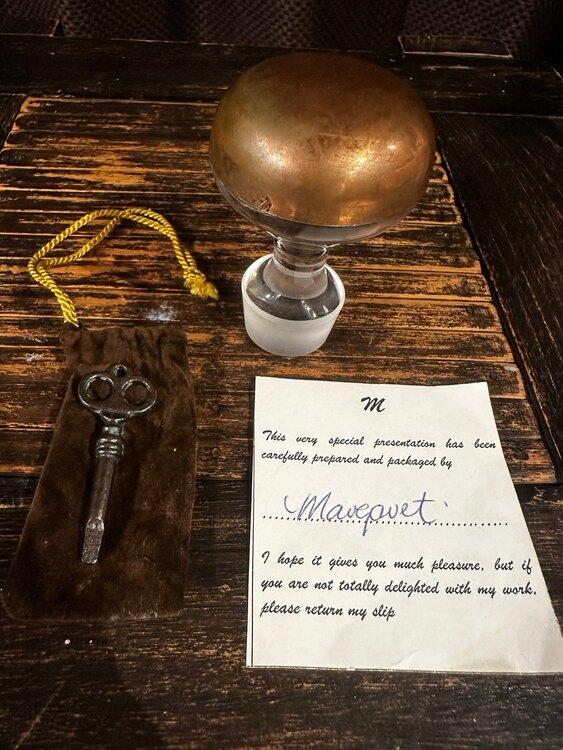 M
This very special presentation has been
carefully prepared and packaged by
Margaret
I hope it gives you much pleasure, but if
you are not totally delighted with my work,
please return my slip